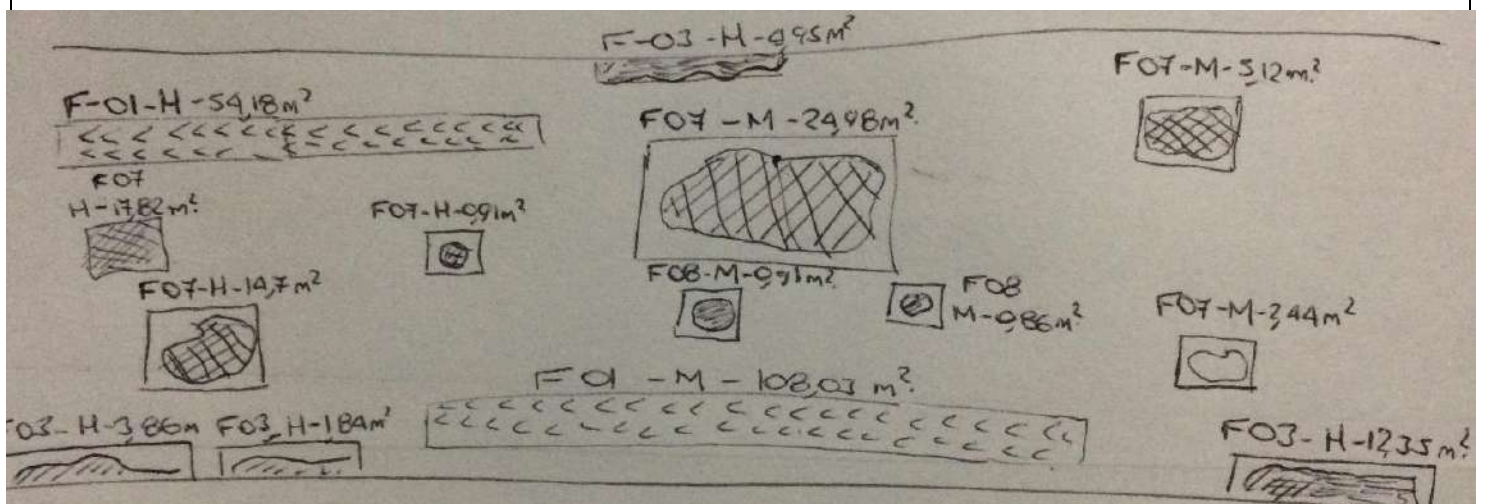 F-03-H-4,95m²
F07-M-5,12m²
F-01-H-54,18m²
F07-M-24,98m².
F07
H-17,82m²
F07-H-0,91m²
F07-H-14,7m²
F08-M-0,91m²
F08
M-0,86m²
F07-M-3,44m²
F01-M-108,03 m².
F03-H-3,86m
F03-H-1,84m²
F03-H-12,35m²